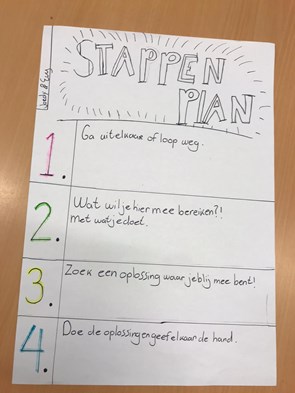 STAPPEN
PLAN
1.
Ga uit elkaar of loop weg.
2.
Wat wil je hier mee bereiken?!
met wat je doet.
3.
Zoek een oplossing waar je blij mee bent!
4.
Doe de oplossing en geef elkaar de hand.